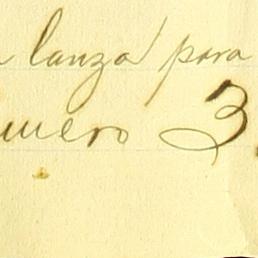 a lanza para
umero 3.